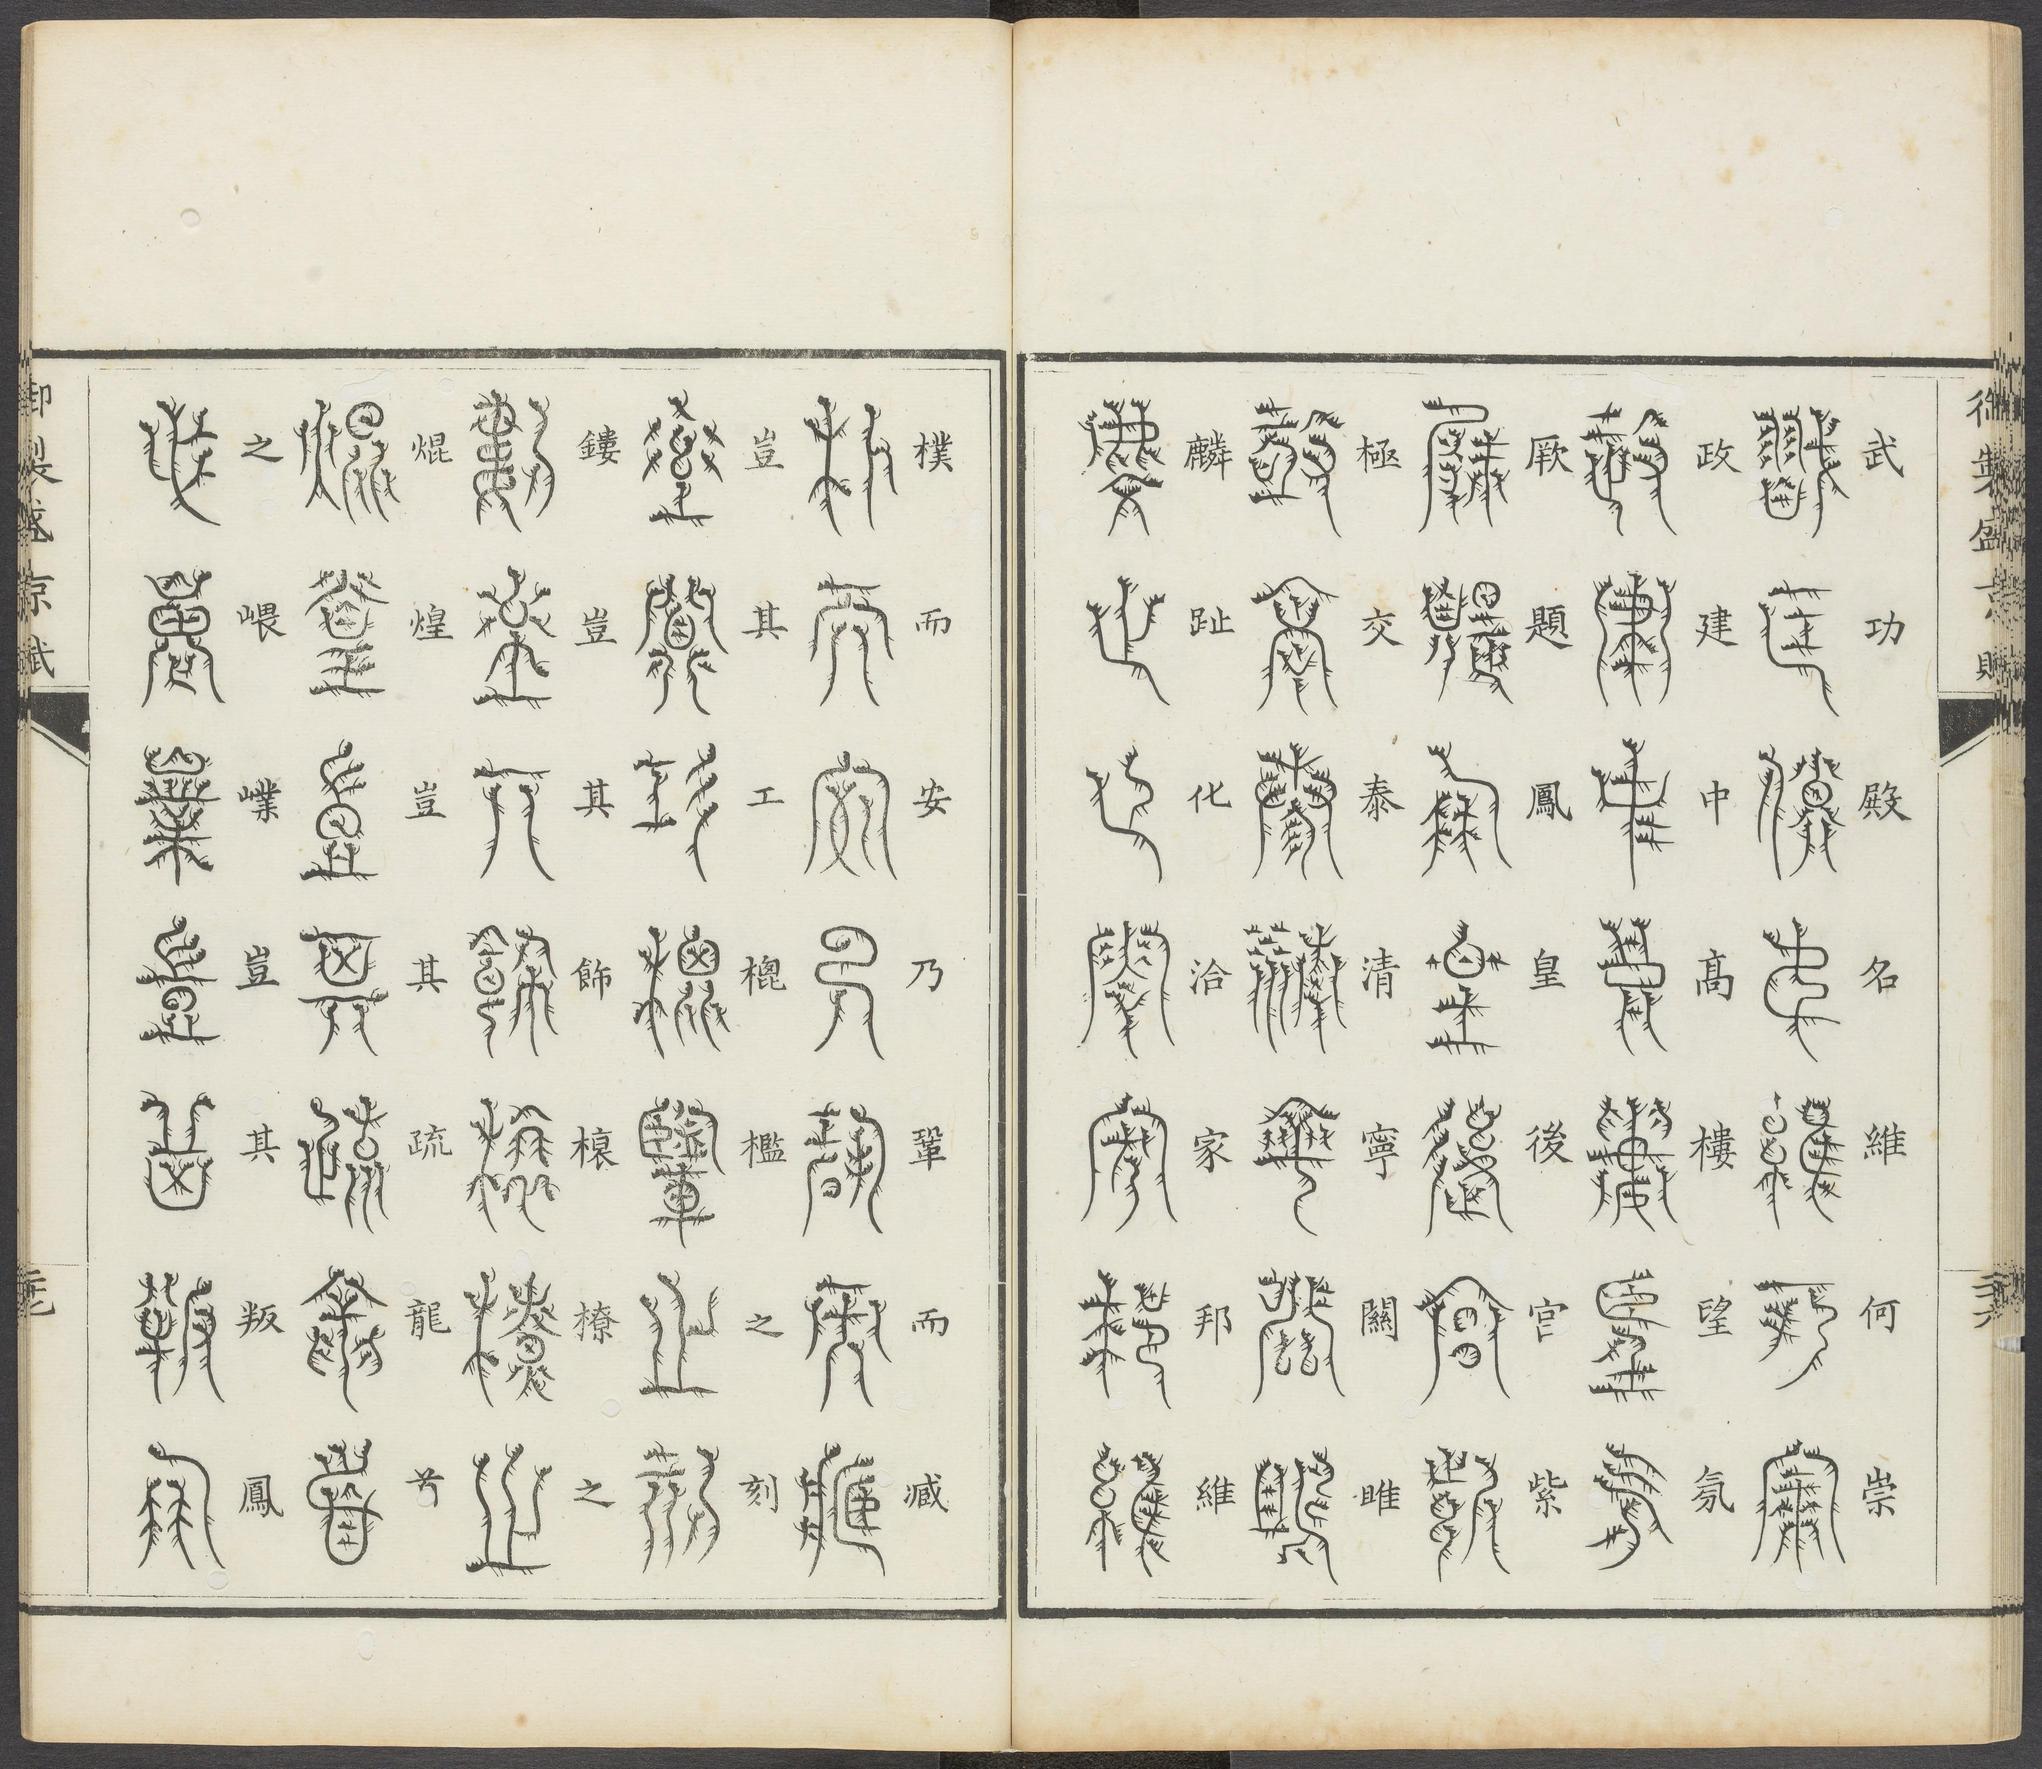 御製盛京賦
武功殿名維何崇
政建中高樓望氛
厥題鳳皇後宮紫
極交泰清寧關雎
麟趾化洽家邦維
二十六
樸而安乃鞏而臧
豈其工樬檻之刻
鏤豈其飾榱橑之
焜煌豈其疏龍首
之嵔嶫豈其叛鳳
御製盛京賦
二十七